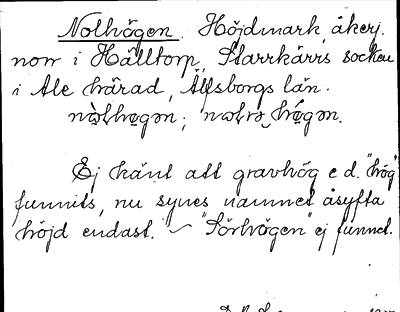 Nolhögen. Höjdmark, åkerj.
norr i Hälltorp, Starrkärrs socken
i Ale härad, Älfsborgs län.
Ej känt att gravhög e.d. "hög"
funnits, nu synes namnet åsyfta
höjd endast. ~ "Sörhögen" ej funnet.